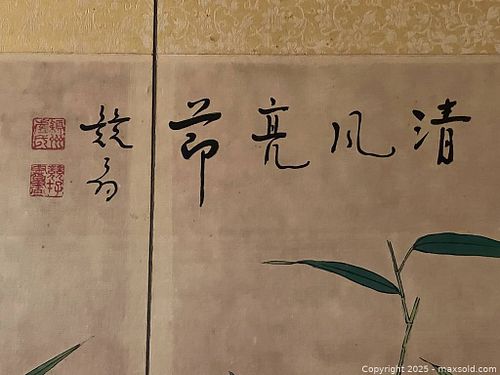 清風亮節
競翁
Copyright 2025 - maxsold.com